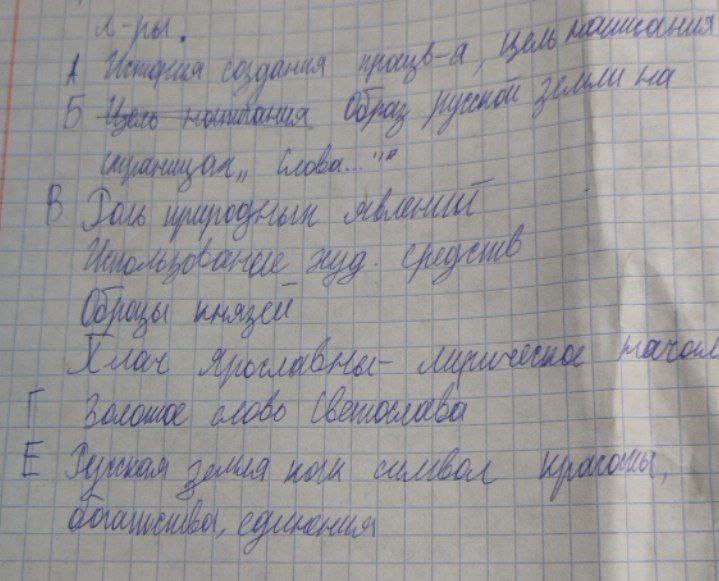 л-ры.
А История создания произв-я, цель написания
Б Цель написания Образ русской земли на
страницах „Слова..."
В Роль природных явлений
Использование худ. средств
Образы князей
Плач Ярославны - лирическое начало
Г Золотое слово Святослава
Е Русская земля как символ красоты,
богатства, единения